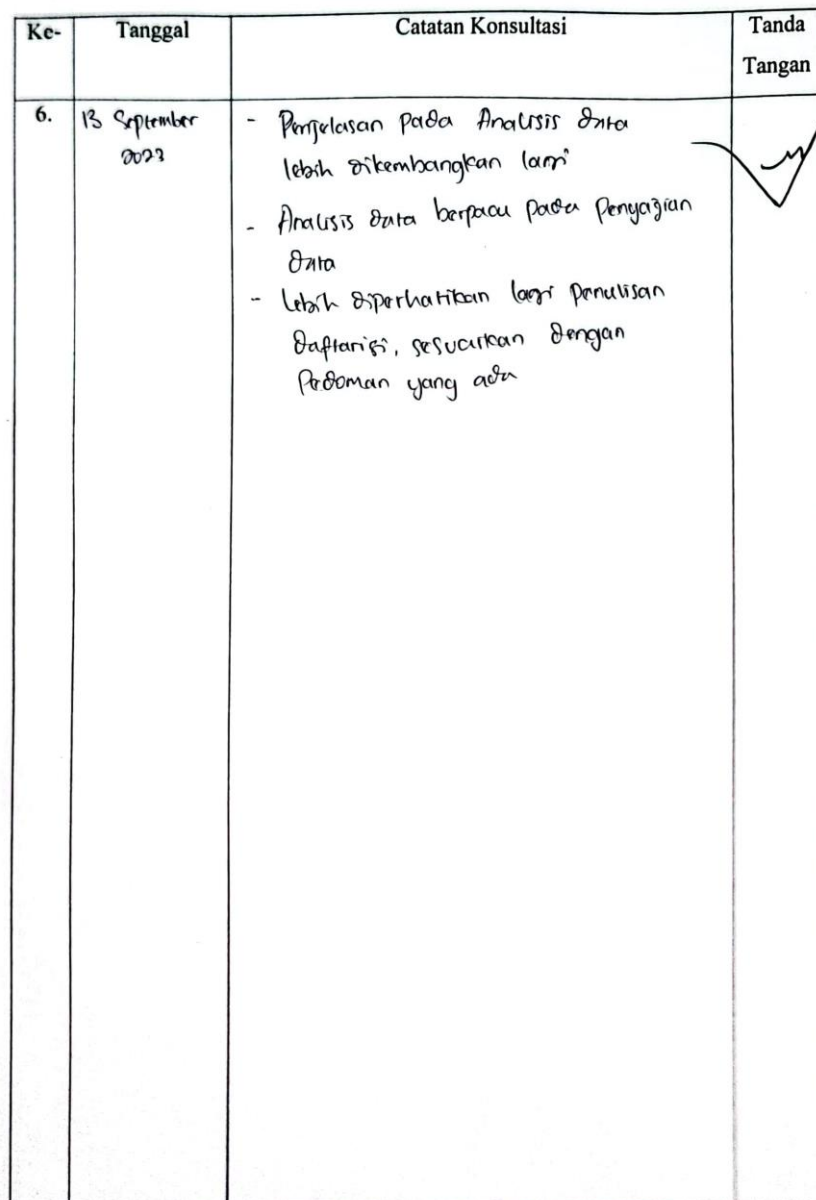 Ke- Tanggal Catatan Konsultasi Tanda
Tangan
6. 13 September - Penjelasan pada Analisis data
2023 lebih dikembangkan lagi
- Analisis data berpacu pada Penyajian
data
- Lebih diperhatikan lagi penulisan
daftarisi, sesuaikan dengan
Pedoman yang ada